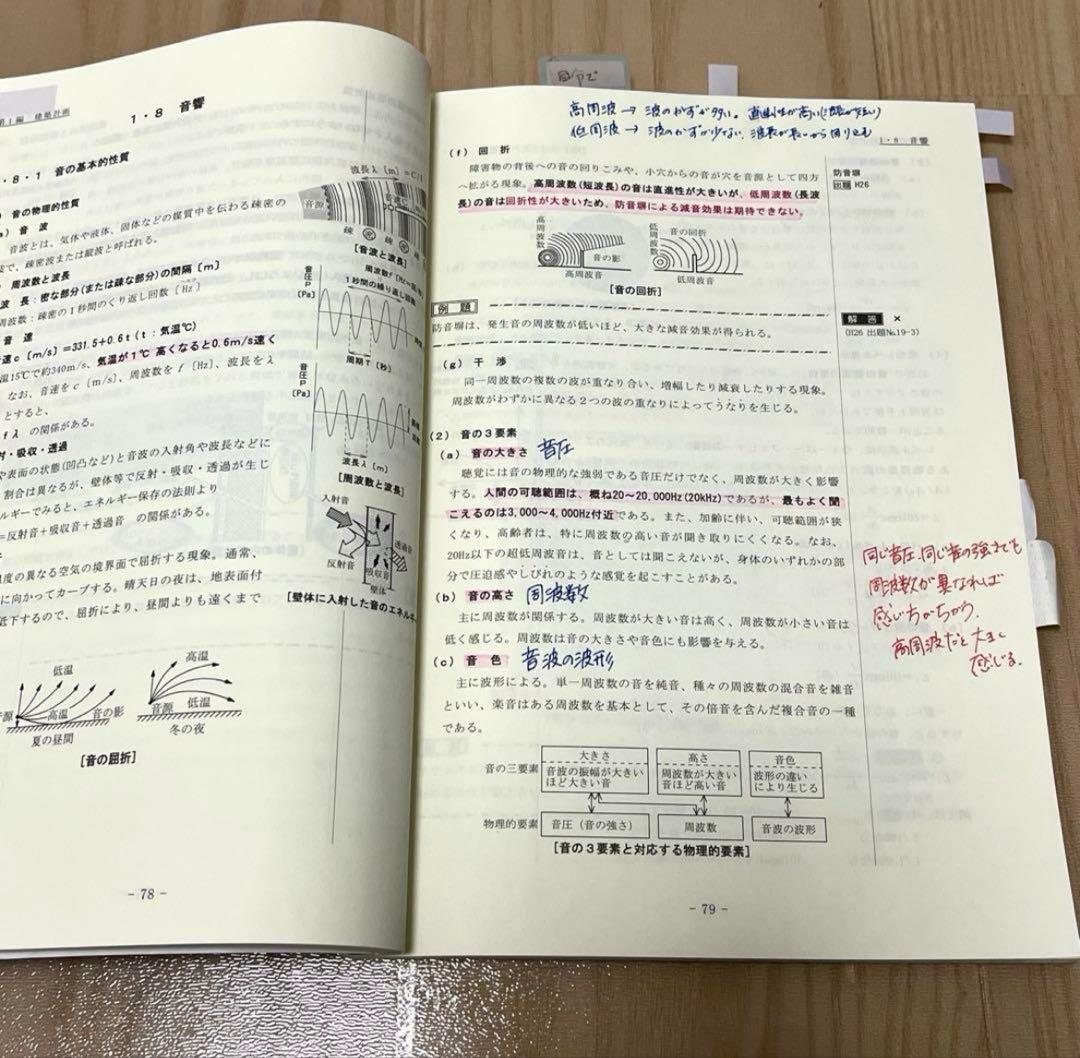 第1編 建築計画
1・8 音響
・8・1 音の基本的性質
音の物理的性質
音波
音波とは、気体や液体、固体などの媒質中を伝わる疎密の
で、疎密波または縦波と呼ばれる。
周波数と波長
波 長:密な部分(または疎な部分)の間隔〔m〕
周波数:疎密の1秒間のくり返し回数〔Hz〕
音 速
速c〔m/s〕=331.5+0.6t(t:気温℃)
温15℃で約340m/s、気温が1℃ 高くなると0.6m/s速く
なお、音速をc〔m/s〕、周波数をf〔Hz〕、波長をλ
とすると、
fλ の関係がある。
射・吸収・透過
や表面の状態(凹凸など)と音波の入射角や波長などに
割合は異なるが、壁体等で反射・吸収・透過が生じ
ルギーでみると、エネルギー保存の法則より
=反射音+吸収音+透過音 の関係がある。
温度の異なる空気の境界面で屈折する現象。通常、
に向かってカーブする。晴天日の夜は、地表面付
低下するので、屈折により、昼間よりも遠くまで
低温
高温
音源
高温
音の影
夏の昼間
音源
低温
冬の夜
[音の屈折]
波長λ〔m〕=C/f
音源
音速C
疎 密 疎 密
[音波と波長]
周波数f〔Hz=回/秒〕
1秒間の繰り返し回数
音圧P
[Pa]
周期T〔秒〕
音圧P
[Pa]
波長λ〔m〕
[周波数と波長]
入射音
反射音
吸収音
透過音
壁体
[壁体に入射した音のエネルギ
- 78 -
自分で
高周波 → 波のかずが多い。直進性が高い
低周波 → 波のかずが少ない。波長が長いから回り込む
1・8 音響
(f) 回 折
障害物の背後への音の回りこみや、小穴からの音が穴を音源として四方
へ拡がる現象。高周波数(短波長)の音は直進性が大きいが、低周波数(長波
長)の音は回折性が大きいため、防音塀による減音効果は期待できない。
防音塀
出題 H26
高周波数
音の影
高周波音
低周波数
音の回折
低周波音
[音の回折]
例 題
防音塀は、発生音の周波数が低いほど、大きな減音効果が得られる。
解 答 ×
(H26 出題No.19-3)
(g) 干 渉
同一周波数の複数の波が重なり合い、増幅したり減衰したりする現象。
周波数がわずかに異なる2つの波の重なりによってうなりを生じる。
(2) 音の3要素
(a) 音の大きさ 音圧
聴覚には音の物理的な強弱である音圧だけでなく、周波数が大きく影響
する。人間の可聴範囲は、概ね20~20,000Hz(20kHz)であるが、最もよく聞
こえるのは3,000~4,000Hz付近である。また、加齢に伴い、可聴範囲が狭
くなり、高齢者は、特に周波数の高い音が聞き取りにくくなる。なお、
20Hz以下の超低周波音は、音としては聞こえないが、身体のいずれかの部
分で圧迫感やしびれのような感覚を起こすことがある。
(b) 音の高さ 周波数
主に周波数が関係する。周波数が大きい音は高く、周波数が小さい音は
低く感じる。周波数は音の大きさや音色にも影響を与える。
(c) 音 色 音波の波形
主に波形による。単一周波数の音を純音、種々の周波数の混合音を雑音
といい、楽音はある周波数を基本として、その倍音を含んだ複合音の一種
である。
同じ音圧、同じ音の強さでも
周波数が異なれば
感じ方がちがう。
高周波だと大きく
感じる。
音の三要素
大きさ
音波の振幅が大きい
ほど大きい音
高さ
周波数が大きい
音ほど高い音
音色
波形の違い
により生じる
物理的要素
音圧(音の強さ)
周波数
音波の波形
[音の3要素と対応する物理的要素]
- 79 -